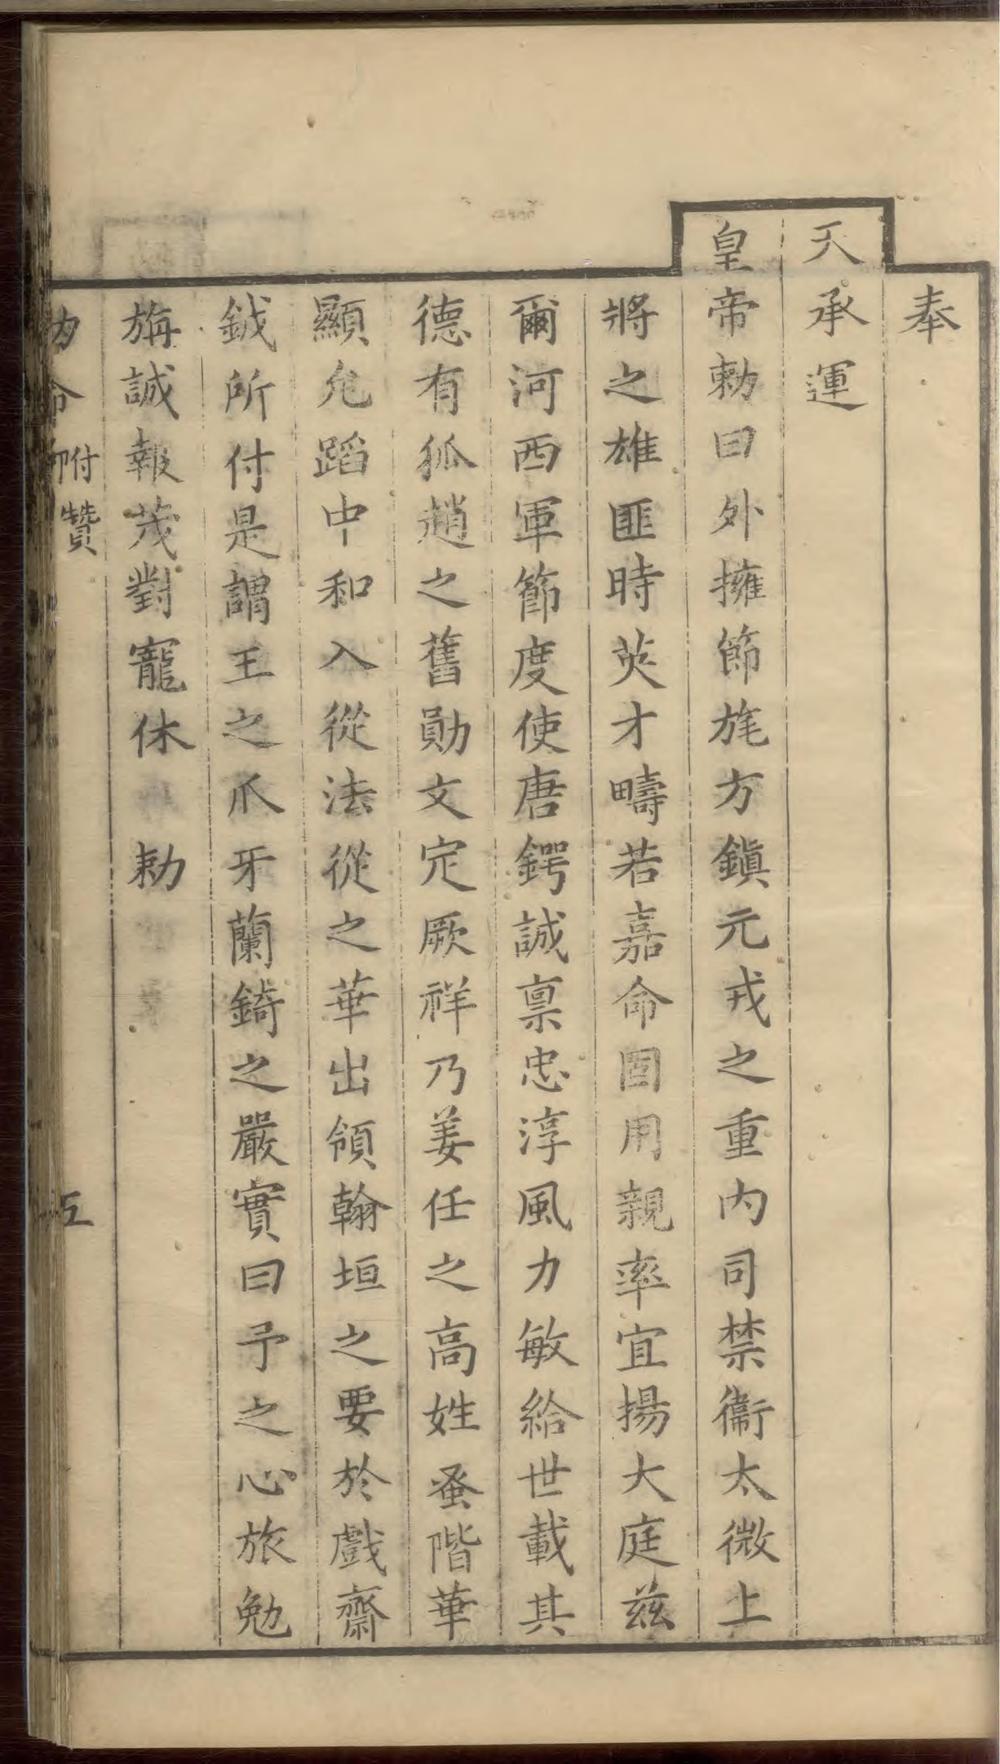 奉
天承運
皇帝勅曰外擁節旄方鎭元戎之重內司禁衞太微上
將之雄匪時英才疇若嘉命固用親率宜揚大庭兹
爾河西軍節度使唐鍔誠禀忠淳風力敏給世載其
德有狐趙之舊勛文定厥祥乃姜任之高姓蚤階華
顯允蹈中和入從法從之華出領翰垣之要於戲齋
鉞所付是謂王之爪牙蘭錡之嚴實曰予之心旅勉
旃誠報茂對寵休 勅
附贊 五